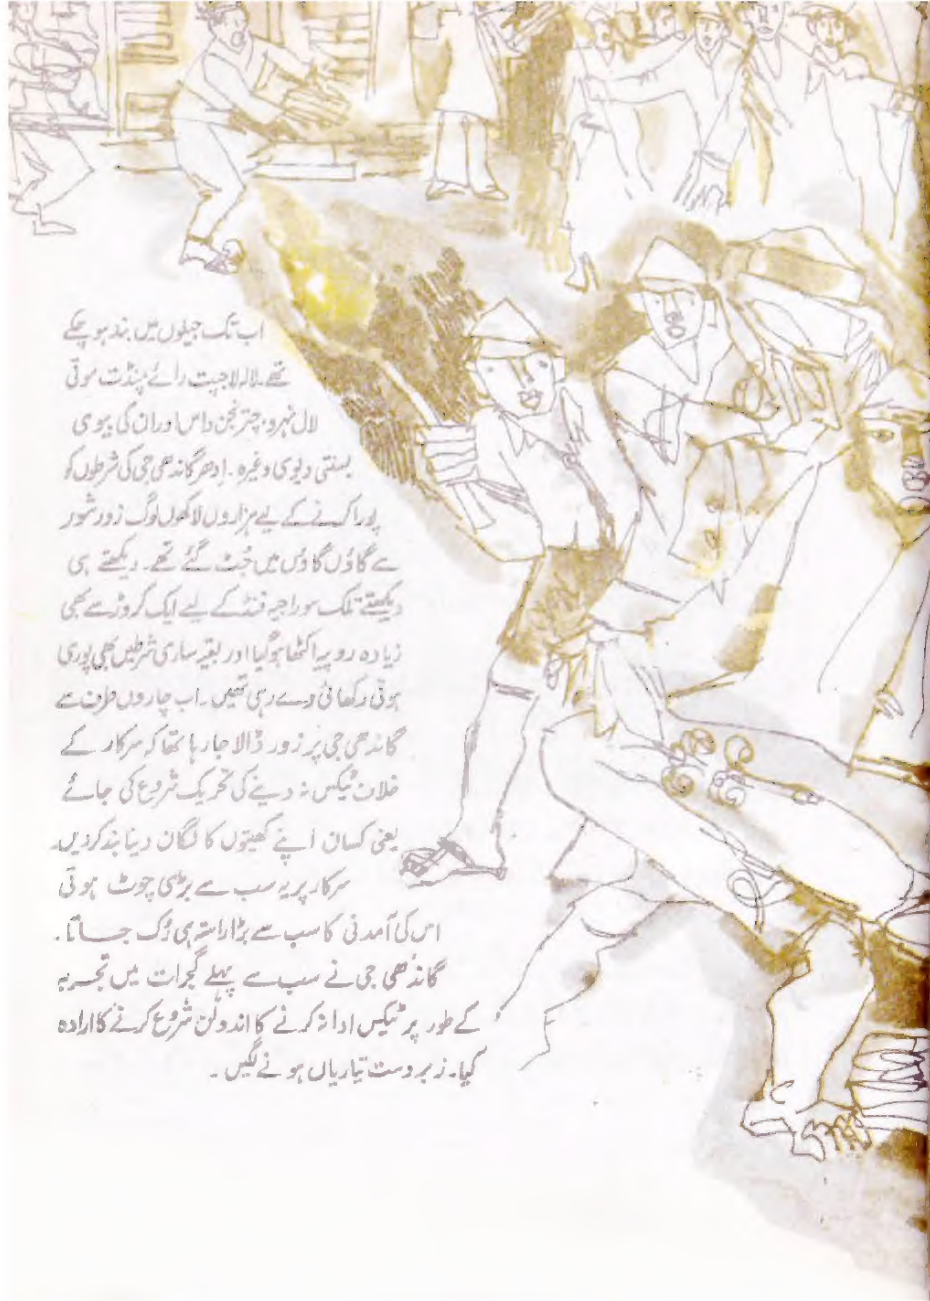 اب تک جیلوں میں بند ہو چکے
تھے۔ لالہ لاجپت رائے پنڈت موتی
لال نہرو، چترنجن داس اور ان کی بیوی
بسنتی دیوی وغیرہ۔ ادھر گاندھی جی کی شرطوں کو
پورا کرنے کے لیے ہزاروں لاکھوں لوگ زور شور
سے گاؤں گاؤں میں جُٹ گئے تھے۔ دیکھتے ہی
دیکھتے تلک سوراجیہ فنڈ کے لیے ایک کروڑ سے بھی
زیادہ روپیہ اکٹھا ہوگیا اور بقیہ ساری شرطیں بھی پوری
ہوتی دکھائی دے رہی تھیں۔ اب چاروں طرف سے
گاندھی جی پر زور ڈالا جا رہا تھا کہ سرکار کے
خلاف ٹیکس نہ دینے کی تحریک شروع کی جائے
یعنی کسان اپنے کھیتوں کا لگان دینا بند کردیں۔
سرکار پر یہ سب سے بڑی چوٹ ہوتی
اس کی آمدنی کا سب سے بڑا راستہ ہی رُک جاتا۔
گاندھی جی نے سب سے پہلے گجرات میں تجربہ
کے طور پر ٹیکس ادا نہ کرنے کا اندولن شروع کرنے کا ارادہ
کیا۔ زبردست تیاریاں ہونے لگیں۔